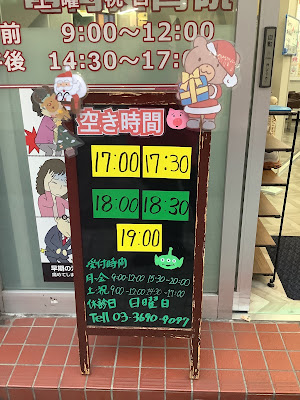 土曜・祝日も診療
前 9:00〜12:00
後 14:30〜17:
空き時間
17:00 17:30
18:00 18:30
19:00
受付時間
月-金 9:00-12:00 15:30-20:00
土.祝 9:00-12:00 14:30-17:00
休診日 日曜日
Tell 03-3690-9097
早期の